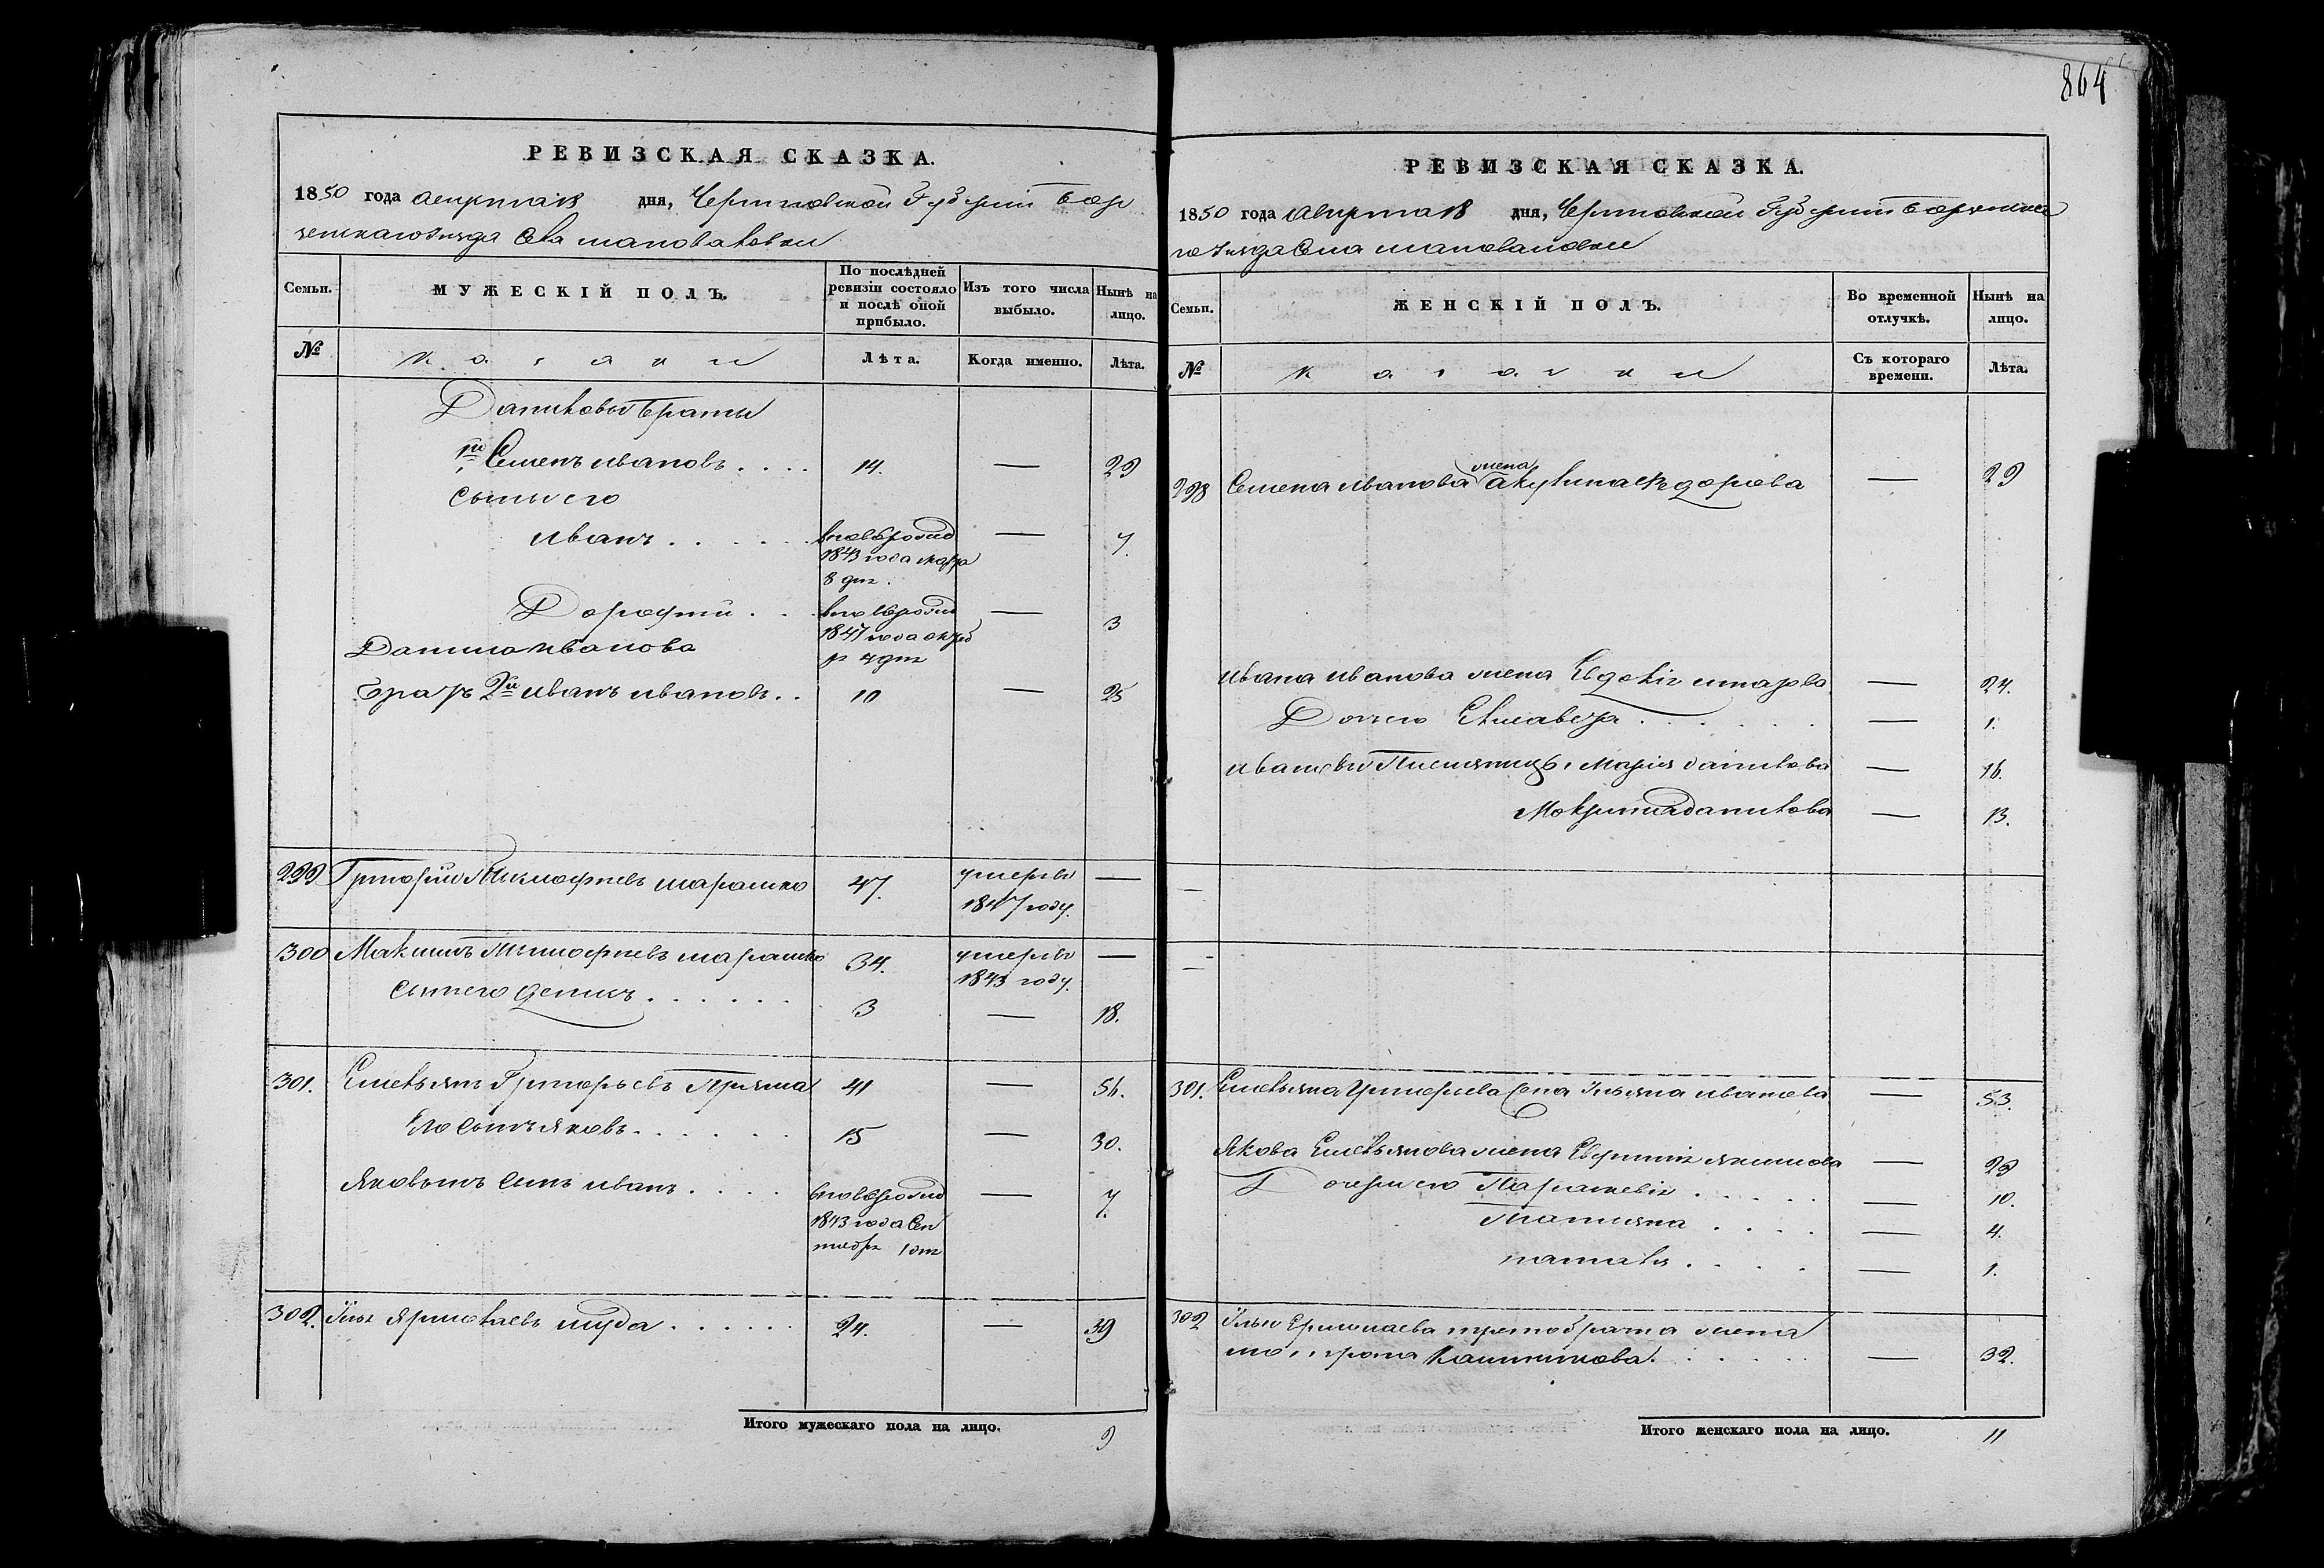 864
РЕВИЗСКАЯ СКАЗКА.
1850 года августа 18 дня, Черниговской Губернiи Бор
зенского уезда Села Шаповаловки
Семьи.
МУЖЕСКІЙ ПОЛЪ.
По послѣдней ревизіи состояло и послѣ оной прибыло.
Изъ того числа выбыло.
Нынѣ на лицо.
№
козаки
Лѣта.
Когда именно.
Лѣта.
Даниловы Браты
1й Семенъ Ивановъ.... 14. — 29
сыны его
Иванъ...... вновь рожд — 7.
1843 года марта
8 дня.
Дорофей... вновь рожд — 3
1847 года октяб
ря 7 дня
Данила Иванова
братъ 2й Иванъ Ивановъ.. 10 — 25
299 Григорий Тимофиевъ Шарамко 47. умеръ в —
1847 году.
300 Максимъ Тимофиевъ Шарамко 34. умеръ в —
1843 году.
сынъ его Денисъ...... 3 — 18.
301. Емельянъ Григорьевъ Пряма 41 — 56.
Его сынъ Яковъ...... 15 — 30.
Яковымъ сынъ Иванъ.... вновь рожд — 7.
1843 года Сен
тября 1 дня
302. Илья Ярмолаевъ Шуда...... 24. — 39
Итого мужескаго пола на лицо. 9
РЕВИЗСКАЯ СКАЗКА.
1850 года августа 18 дня, Черниговской Губернiи Борзенска
го уезда Села Шаповаловки
Семьи.
ЖЕНСКІЙ ПОЛЪ.
Во временной отлучкѣ.
Нынѣ на лицо.
№
козачки
Съ котораго времени.
Лѣта.
298 Семена Иванова жена Акулина Федорова — 29
Ивана Иванова жена Евдокія — 24.
Дочь его Елисавета...... — 1.
Ивановы Племянницы Марія Данилова — 16.
Мокрина Данилова — 13.
—
—
301. Емельяна Григориева жена Ульяна Иванова — 53.
Якова Емельянова жена Якимова — 29
Дочери его Параскевія..... — 10.
Татияна.... — 4.
Наталя.... — 1.
302 Ильи Ермолаева третобрачна жена
Калиникова...... — 32.
Итого женскаго пола на лицо. 11